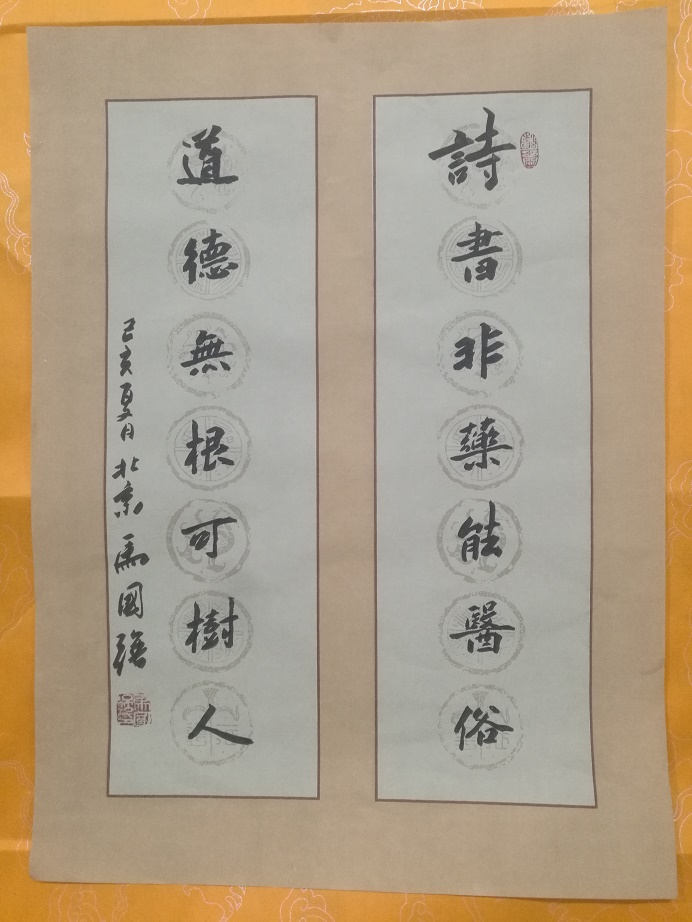 詩書非藥能醫俗
道德無根可樹人
己亥夏月北京馬國強